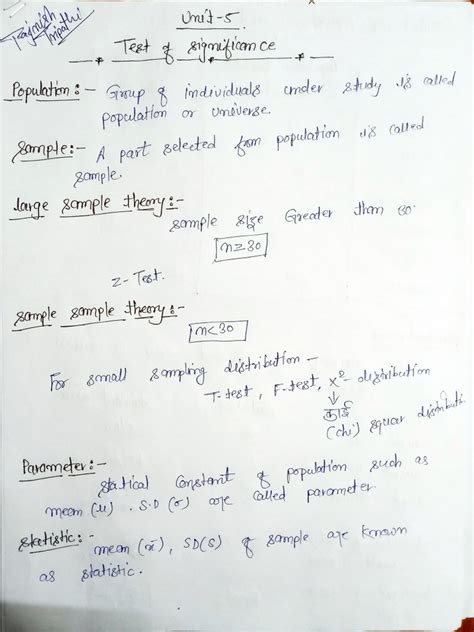 Rajnish
Tripathi
Unit-5
Test of significance
Population:- Group of individuals under study is called
population or universe.
Sample:- A part selected from population is called
sample.
large sample theory:-
sample size Greater than 30.
n≥30
z-Test.
Sample sample theory:-
n<30
For small sampling distribution -
T-test, F-test, x²-distribution
↓
काई
(chi) squar distributi
Parameter:-
statical constant of population such as
mean (μ) . S.D (σ) are called parameter
Statistic:-
mean (x̄), SD(S) of sample are known
as statistic.